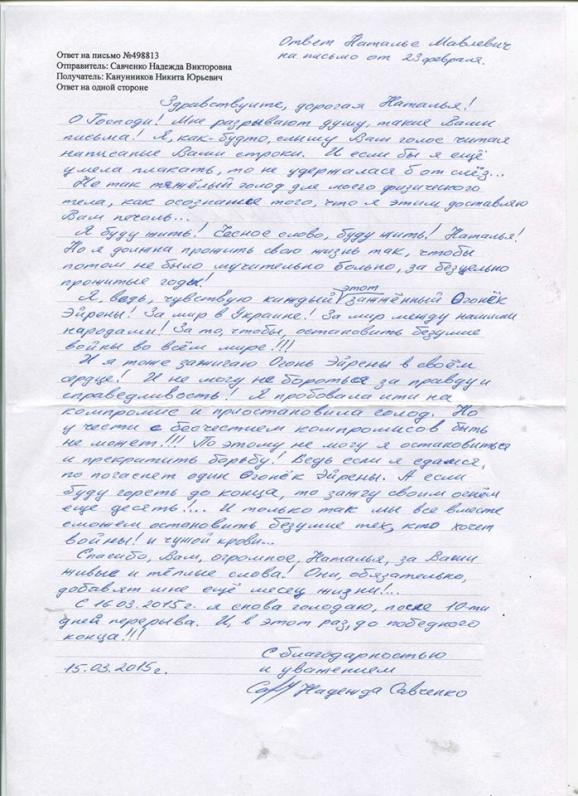 Ответ Наталье Мавлевич
на письмо от 23 февраля.
Ответ на письмо №498813
Отправитель: Савченко Надежда Викторовна
Получатель: Канунников Никита Юрьевич
Ответ на одной стороне
Здравствуйте, дорогая Наталья!
О Господи! Мне разрывают душу, такие Ваши
письма! Я, как-будто, слышу Ваш голос читая
написаные Вами строки. И если бы я ещё
умела плакать, то не удержалася б от слёз...
Не так тяжёлый голод для моего физичного
тела, как осознание того, что я этим доставляю
Вам печаль...
Я буду жить! Чесное слово, буду жить! Наталья!
Но я должна прожить свою жизнь так, чтобы
потом не было мучительно больно, за безцельно
прожитые годы!
Я, ведь, чувствую каждый этот зажжённый Огонёк
Эйрены! За мир в Украине! За мир между нашими
народами! За то, чтобы, остановить безумие
войны во всём мире!!!
И я тоже зажигаю Огонь Эйрены в своём
сердце! И не могу не бороться за правду и
справедливость! Я пробовала ити на
компромис и приостановила голод. Но
у чести с безчестием компромисов быть
не может!!! По этому не могу я остановиться
и прекратить борьбу! Ведь если я сдамся,
то погаснет один Огонёк Эйрены. А если
буду гореть до конца, то зажгу своим огнём
еще десять!... И только так мы все вместе
сможем остановить безумие тех, кто хочет
войны! и чужой крови...
Спасибо, Вам, огромное, Наталья, за Ваши
живые и тёплые слова! Они, обязательно,
добавят мне ещё месец жизни!...
С 16.03.2015г. я снова голодаю, после 10-ти
дней перерыва. И, в этот раз, до победного
конца!!!
С благодарностью
15.03.2015г. и уважением
Надежда Савченко